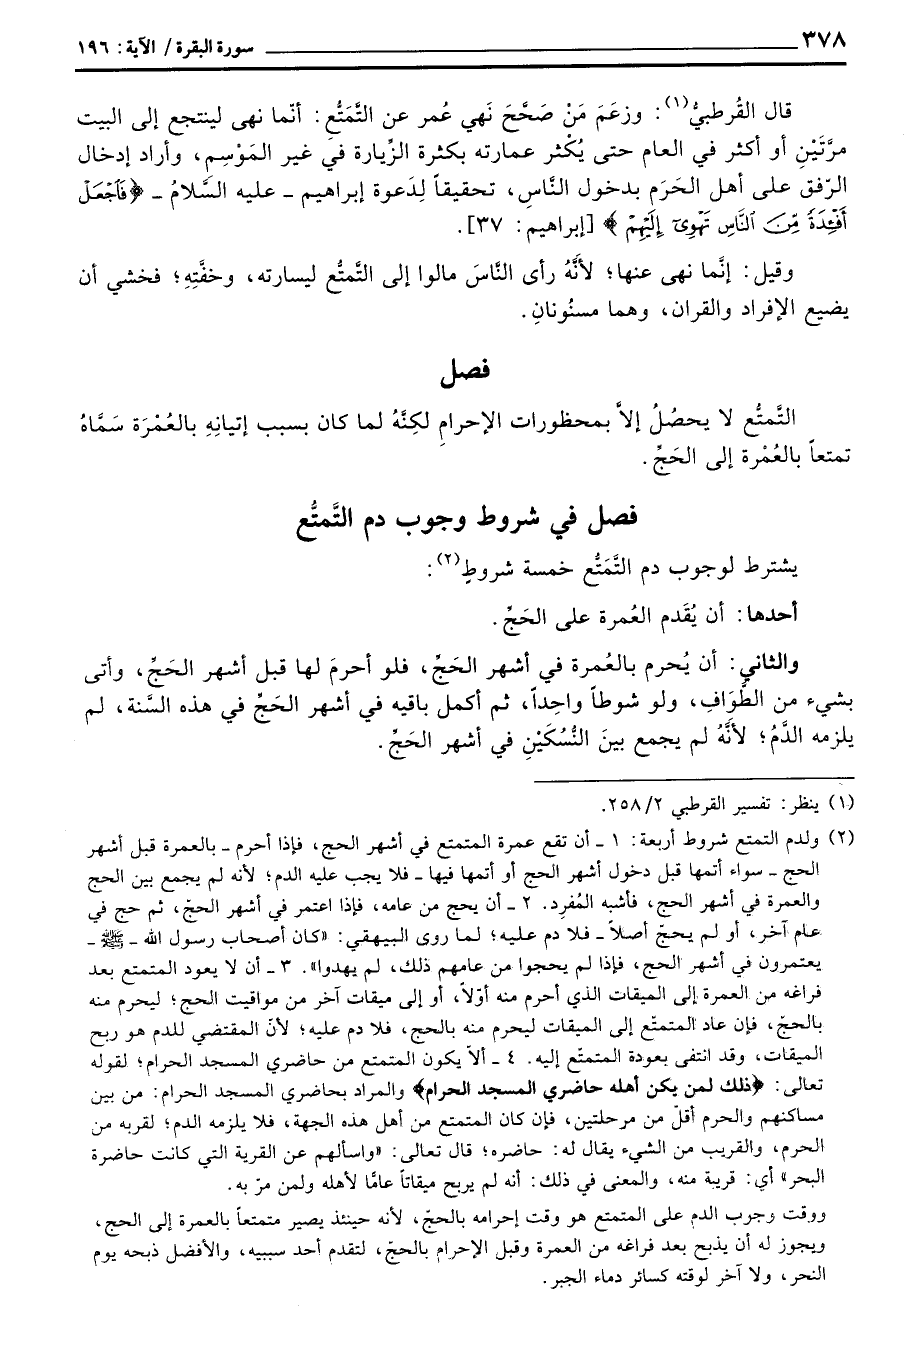 ٣٧٨ سورة البقرة/ الآية: ١٩٦
قال القُرطبيُّ(١): وزعَمَ مَنْ صَحَّحَ نَهي عُمر عن التَّمَتُّعِ: أنّما نهى لينتجع إلى البيت
مرَّتَيْنِ أو أكثر في العام حتى يُكْثر عمارته بكثرة الزِّيارة في غير المَوْسِم، وأراد إدخال
الرِّفق على أهل الحَرَم بدخول النَّاسِ، تحقيقاً لِدَعوة إبراهيم ـ عليه السَّلامُ ـ ﴿فَٱجْعَلْ
أَفْئِدَةً مِّنَ ٱلنَّاسِ تَهْوِىٓ إِلَيْهِمْ﴾ [إبراهيم: ٣٧].
وقيل: إنَّما نهى عنها؛ لأنَّهُ رأى النَّاسَ مالوا إلى التَّمتُّع ليسارته، وخفَّتِهِ؛ فخشي أن
يضيع الإفراد والقران، وهما مسنُونانِ.
فصل
التَّمتُّع لا يحصُلُ إلاَّ بمحظورات الإحرامِ لكِنَّهُ لما كان بسبب إتيانِهِ بالعُمْرَة سَمَّاهُ
تمتعاً بالعُمْرة إلى الحَجِّ.
فصل في شروط وجوب دم التَّمتُّع
يشترط لوجوب دم التَّمَتُّع خمسة شروطٍ(٢):
أحدها: أن يُقَدم العُمرة على الحَجِّ.
والثاني: أن يُحرم بالعُمرة في أشهر الحَجِّ، فلو أحرمَ لها قبل أشهر الحَجِّ، وأتى
بشيء من الطَّوَافِ، ولو شوطاً واحِداً، ثم أكمل باقيه في أشهر الحَجِّ في هذه السَّنة، لم
يلزمه الدَّمُ؛ لأنَّهُ لم يجمع بينَ النُّسُكَيْنِ في أشهر الحَجِّ.
(١) ينظر: تفسير القرطبي ٢/ ٢٥٨.
(٢) ولدم التمتع شروط أربعة: ١ ـ أن تقع عمرة المتمتع في أشهر الحج، فإذا أحرم ـ بالعمرة قبل أشهر
الحج ـ سواء أتمها قبل دخول أشهر الحج أو أتمها فيها ـ فلا يجب عليه الدم؛ لأنه لم يجمع بين الحج
والعمرة في أشهر الحج، فأشبه المُفرِد. ٢ ـ أن يحج من عامه، فإذا اعتمر في أشهر الحجّ، ثم حج في
عام آخر، أو لم يحجّ أصلاً ـ فلا دم عليه؛ لما روى البيهقي: «كان أصحاب رسول الله ـ ﷺ ـ
يعتمرون في أشهر الحج، فإذا لم يحجوا من عامهم ذلك، لم يهدوا». ٣ ـ أن لا يعود المتمتع بعد
فراغه من العمرة إلى الميقات الذي أحرم منه أوّلاً، أو إلى ميقات آخر من مواقيت الحج؛ ليحرم منه
بالحجّ، فإن عاد المتمتّع إلى الميقات ليحرم منه بالحج، فلا دم عليه؛ لأنّ المقتضي للدم هو ربح
الميقات، وقد انتفى بعودة المتمتّع إليه. ٤ ـ ألاّ يكون المتمتع من حاضري المسجد الحرام؛ لقوله
تعالى: ﴿ذلك لمن يكن أهله حاضري المسجد الحرام﴾ والمراد بحاضري المسجد الحرام: من بين
مساكنهم والحرم أقلّ من مرحلتين، فإن كان المتمتع من أهل هذه الجهة، فلا يلزمه الدم؛ لقربه من
الحرم، والقريب من الشيء يقال له: حاضره؛ قال تعالى: «واسألهم عن القرية التي كانت حاضرة
البحر» أي: قريبة منه، والمعنى في ذلك: أنه لم يربح ميقاتاً عامًّا لأهله ولمن مرّ به.
ووقت وجوب الدم على المتمتع هو وقت إحرامه بالحجّ، لأنه حينئذ يصير متمتعاً بالعمرة إلى الحج،
ويجوز له أن يذبح بعد فراغه من العمرة وقبل الإحرام بالحجّ، لتقدم أحد سببيه، والأفضل ذبحه يوم
النحر، ولا آخر لوقته كسائر دماء الجبر.